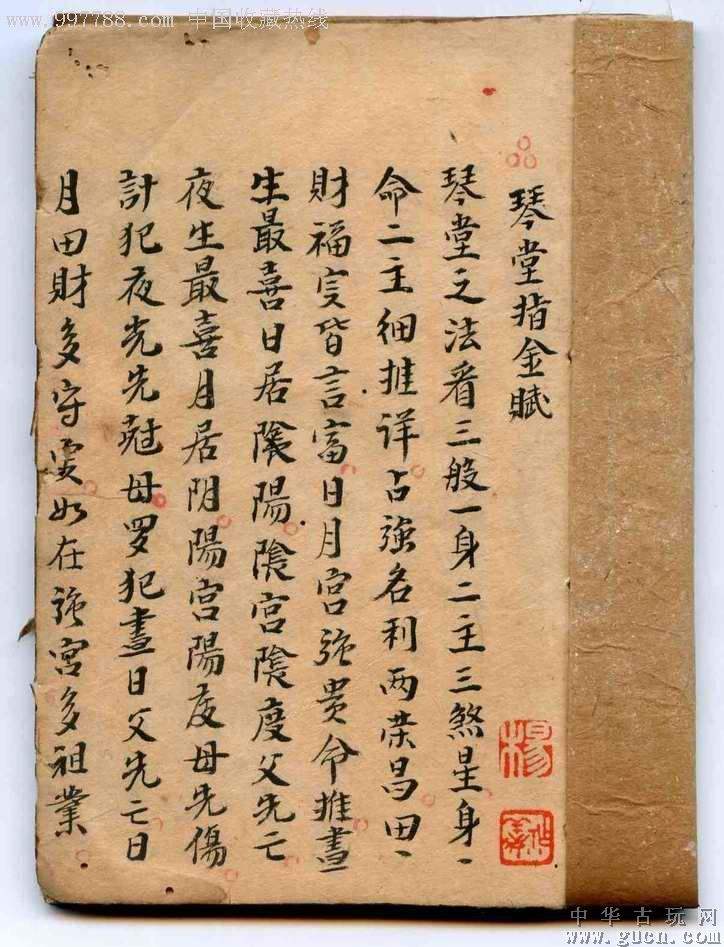 www.997788.com 中国收藏热线
琴堂指金賦
琴堂之法看三般一身二主三煞星身一
命二主細推详占強名利两荣昌田一
財福实皆言富日月宫強贵命推晝
生最喜日居陰陽陰宫陰度父先亡
夜生最喜月居阴陽宫陽度母先傷
計犯夜光先尅母罗犯晝日父先亡日
月田財多守实如在強宫多祖業
楊
中华古玩网
www.gucn.com